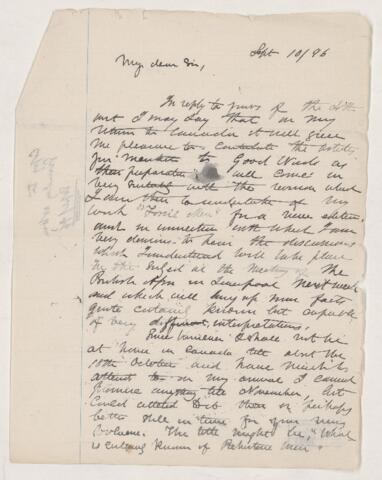 Sept 10/96
My dear Sir,
In reply to yours of the 4th
inst I may say that on my
return to Canada it will give
me pleasure to contribute the article
you mention to Good Words as
their preparation will come in
very suitably with the revision which
I am then to undertake of my
work "Fossil Men" for a new edition
and in connection with which I am
very desirous to hear the discussions
which I understand will take place
on the subject at the meeting of the
British Assn in Liverpool next week
and which will bring up many facts
quite certainly known but capable
of very different interpretations.
I shall not be
at home in Canada till about the
10th October and have much to
attend to on my arrival I cannot
promise anything till November, but
could attend to it then or perhaps
better still in time for your new
volume. The title might be, "What
is certainly known of Prehistoric Men"